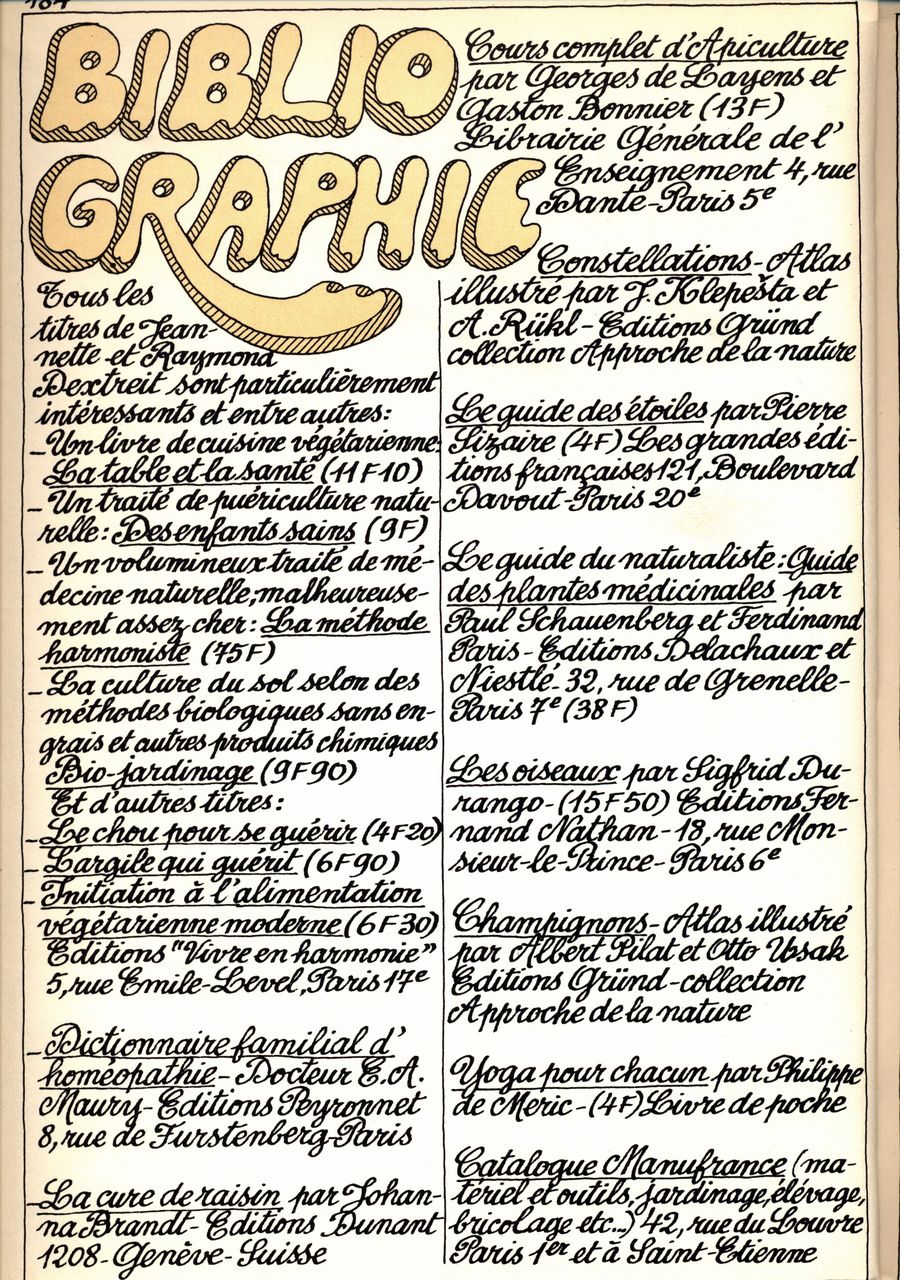 BIBLIO
GRAPHIE
Tous les
titres de Jean-
nette et Raymond
Dextreit sont particulièrement
intéressants et entre autres:
- Un livre de cuisine végétarienne:
La table et la santé (11F10)
- Un traité de puériculture natu-
relle: Des enfants sains (9F)
- Un volumineux traité de mé-
decine naturelle, malheureuse-
ment assez cher: La méthode
harmoniste (75F)
- La culture du sol selon des
méthodes biologiques sans en-
grais et autres produits chimiques
Bio-jardinage (9F90)
Et d'autres titres:
- Le chou pour se guérir (4F20)
- L'argile qui guérit (6F90)
- Initiation à l'alimentation
végétarienne moderne (6F30)
Editions "Vivre en harmonie"
5, rue Emile-Level, Paris 17e
- Dictionnaire familial d'
homéopathie - Docteur E.A.
Maury - Editions Peyronnet
8, rue de Furstenberg-Paris
- La cure de raisin par Johan-
na Brandt - Editions Dunant
1208 - Genève - Suisse
Cours complet d'Apiculture
par Georges de Layens et
Gaston Bonnier (13F)
Librairie Générale de l'
Enseignement 4, rue
Dante-Paris 5e
Constellations - Atlas
illustré par J. Klepesta et
A. Rükl - Editions Gründ
collection Approche de la nature
Le guide des étoiles par Pierre
Sizaire (4F) Les grandes édi-
tions françaises 121, Boulevard
Davout-Paris 20e
Le guide du naturaliste: Guide
des plantes médicinales par
Paul Schauenberg et Ferdinand
Paris - Editions Delachaux et
Niestlé - 32, rue de Grenelle-
Paris 7e (38F)
Les oiseaux par Sigfrid Du-
rango - (15F50) Editions Fer-
nand Nathan - 18, rue Mon-
sieur-le-Prince - Paris 6e
Champignons - Atlas illustré
par Albert Pilat et Otto Usak
Editions Gründ - collection
Approche de la nature
Yoga pour chacun par Philippe
de Meric - (4F) Livre de poche
Catalogue Manufrance (ma-
tériel et outils, jardinage, élévage,
bricolage etc...) 42, rue du Louvre
Paris 1er et à Saint-Etienne